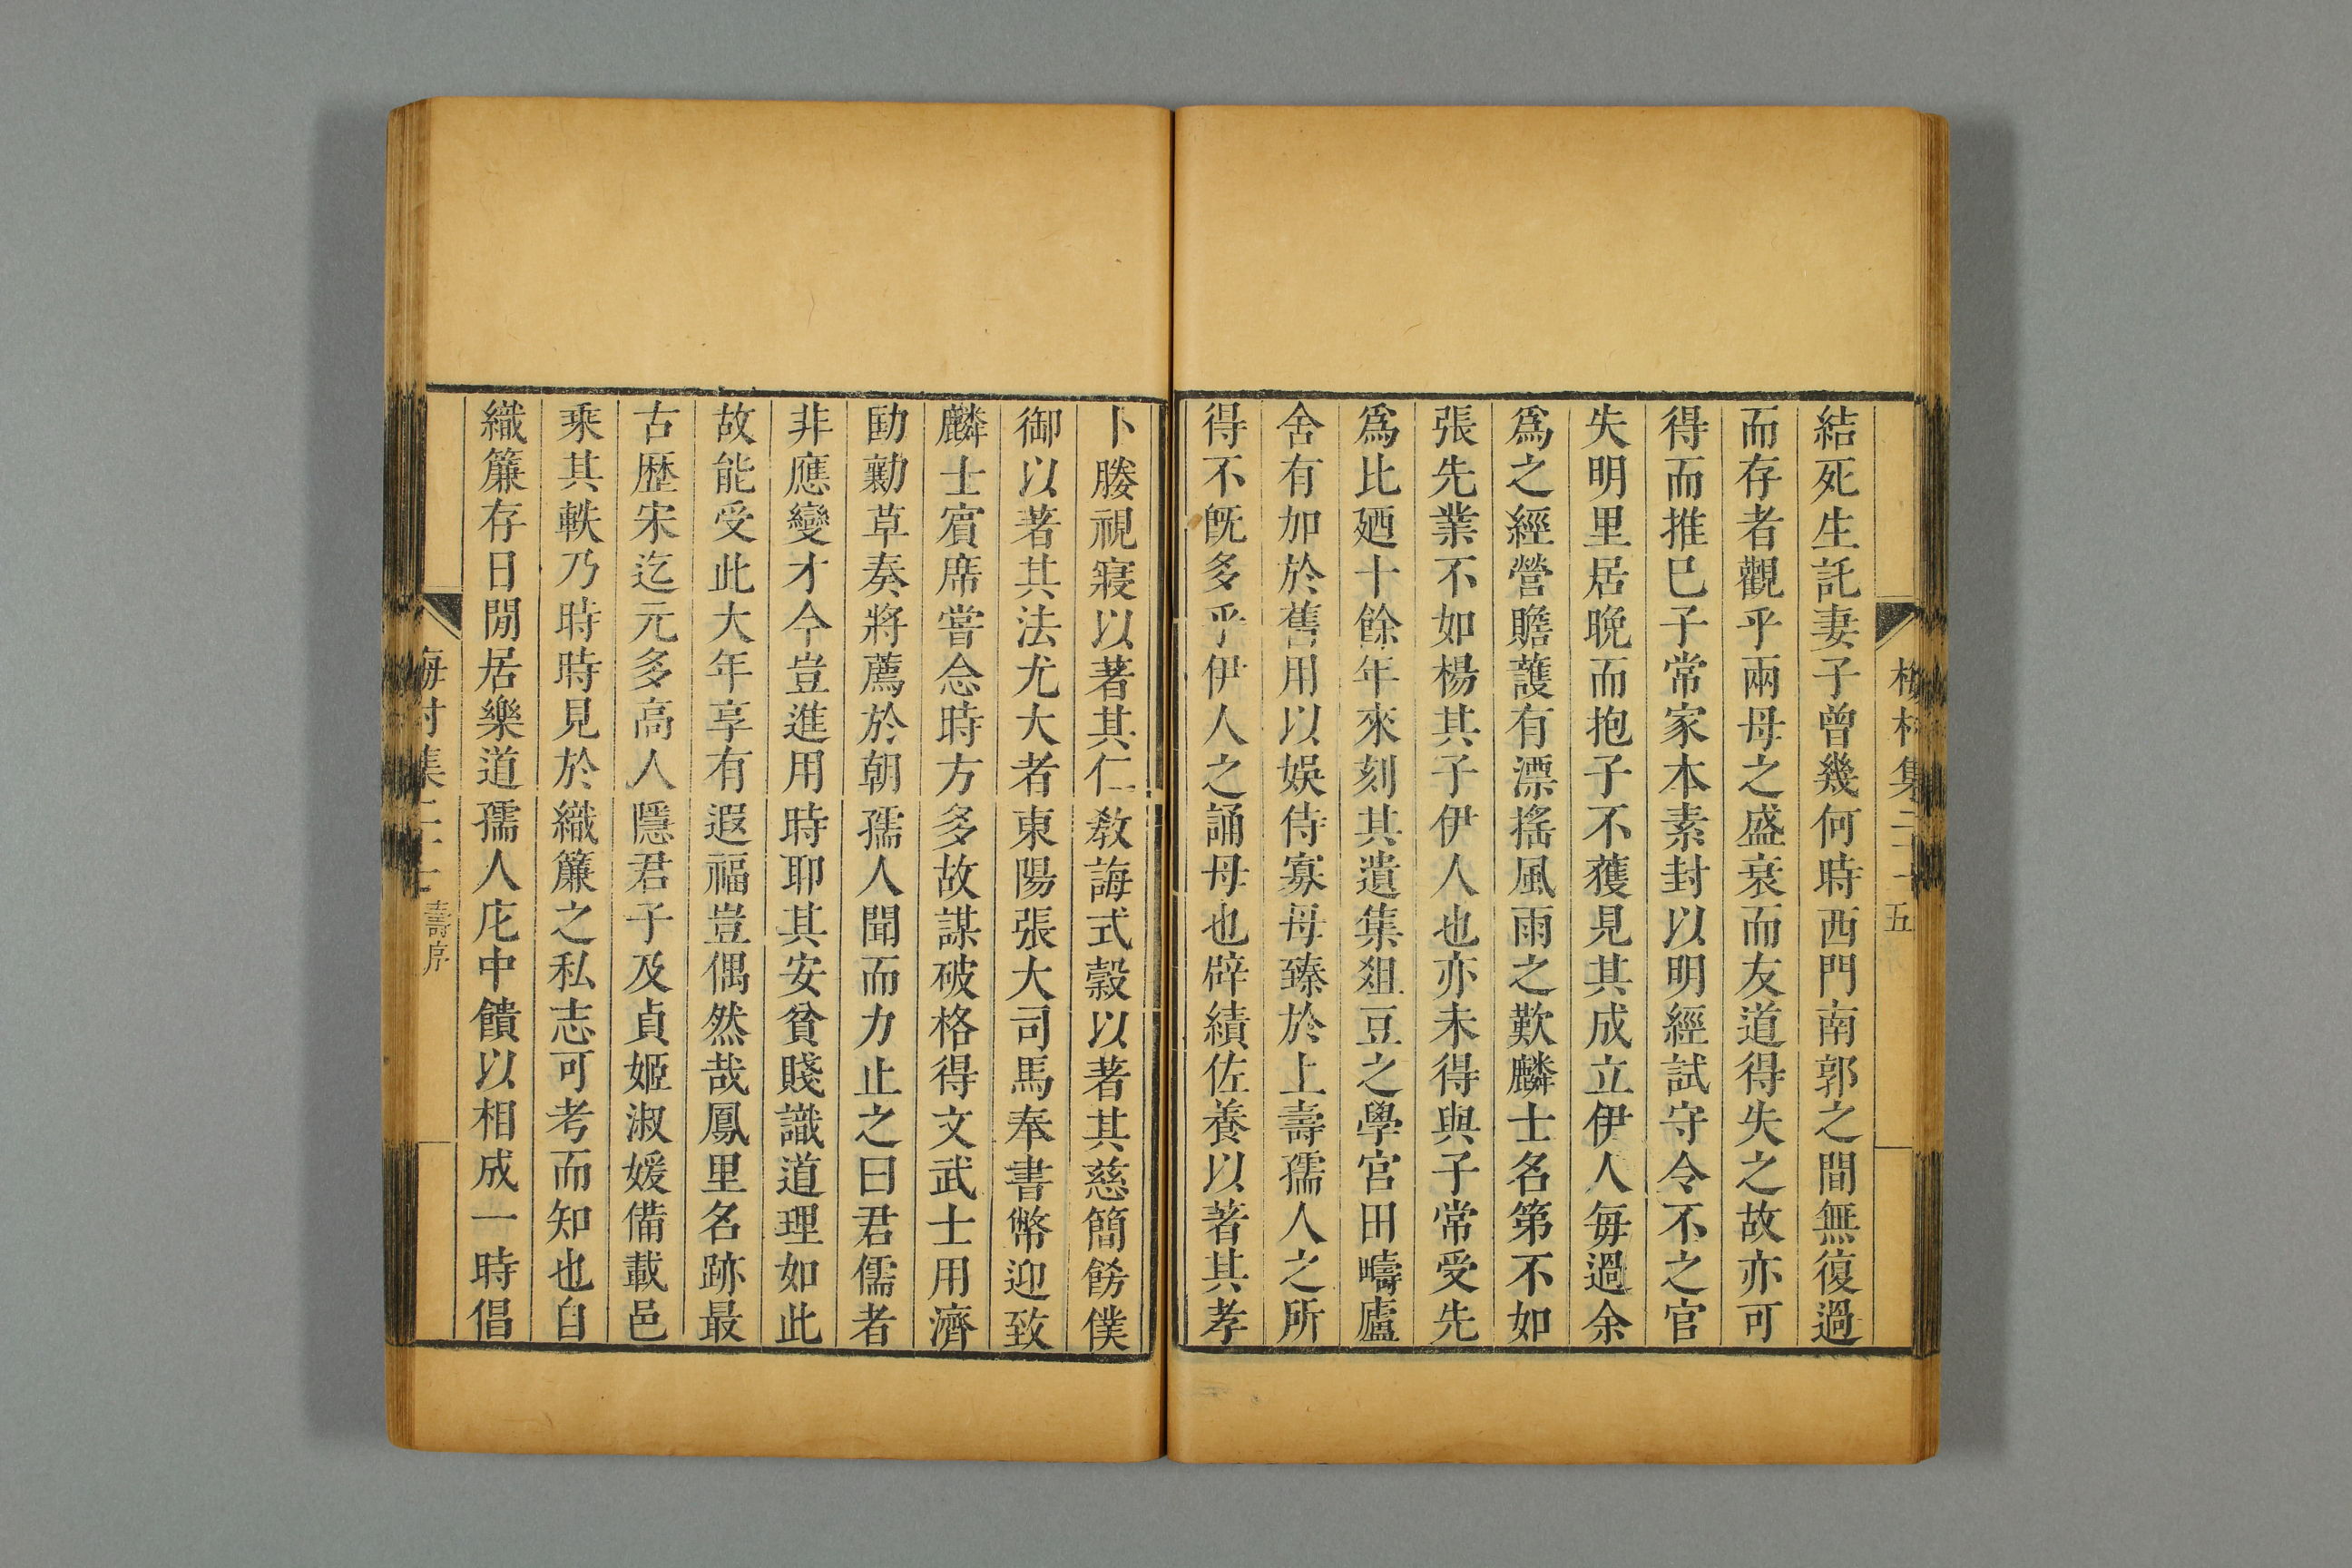 結死生託妻子曾幾何時西門南郭之間無復過
而存者觀乎兩母之盛衰而友道得失之故亦可
得而推已子常家本素封以明經試守令不之官
失明里居晩而抱子不獲見其成立伊人每過余
爲之經營贍護有漂搖風雨之歎麟士名第不如
張先業不如楊其子伊人也亦未得與子常受先
爲比廼十餘年來刻其遺集俎豆之學宮田疇廬
舍有加於舊用以娛侍寡母臻於上壽孺人之所
得不旣多乎伊人之誦母也辟績佐養以著其孝
卜媵視寢以著其仁敎誨式穀以著其慈簡餝僕
御以著其法尤大者東陽張大司馬奉書幣迎致
麟士賓席嘗念時方多故謀破格得文武士用濟
劻勷草奏將薦於朝孺人聞而力止之曰君儒者
非應變才今豈進用時耶其安貧賤識道理如此
故能受此大年享有遐福豈偶然哉鳳里名跡最
古歷宋迄元多高人隱君子及貞姬淑媛備載邑
乘其軼乃時時見於織簾之私志可考而知也自
織簾存日閒居樂道孺人庀中饋以相成一時倡
梅村集二十 壽序
梅村集二十 五